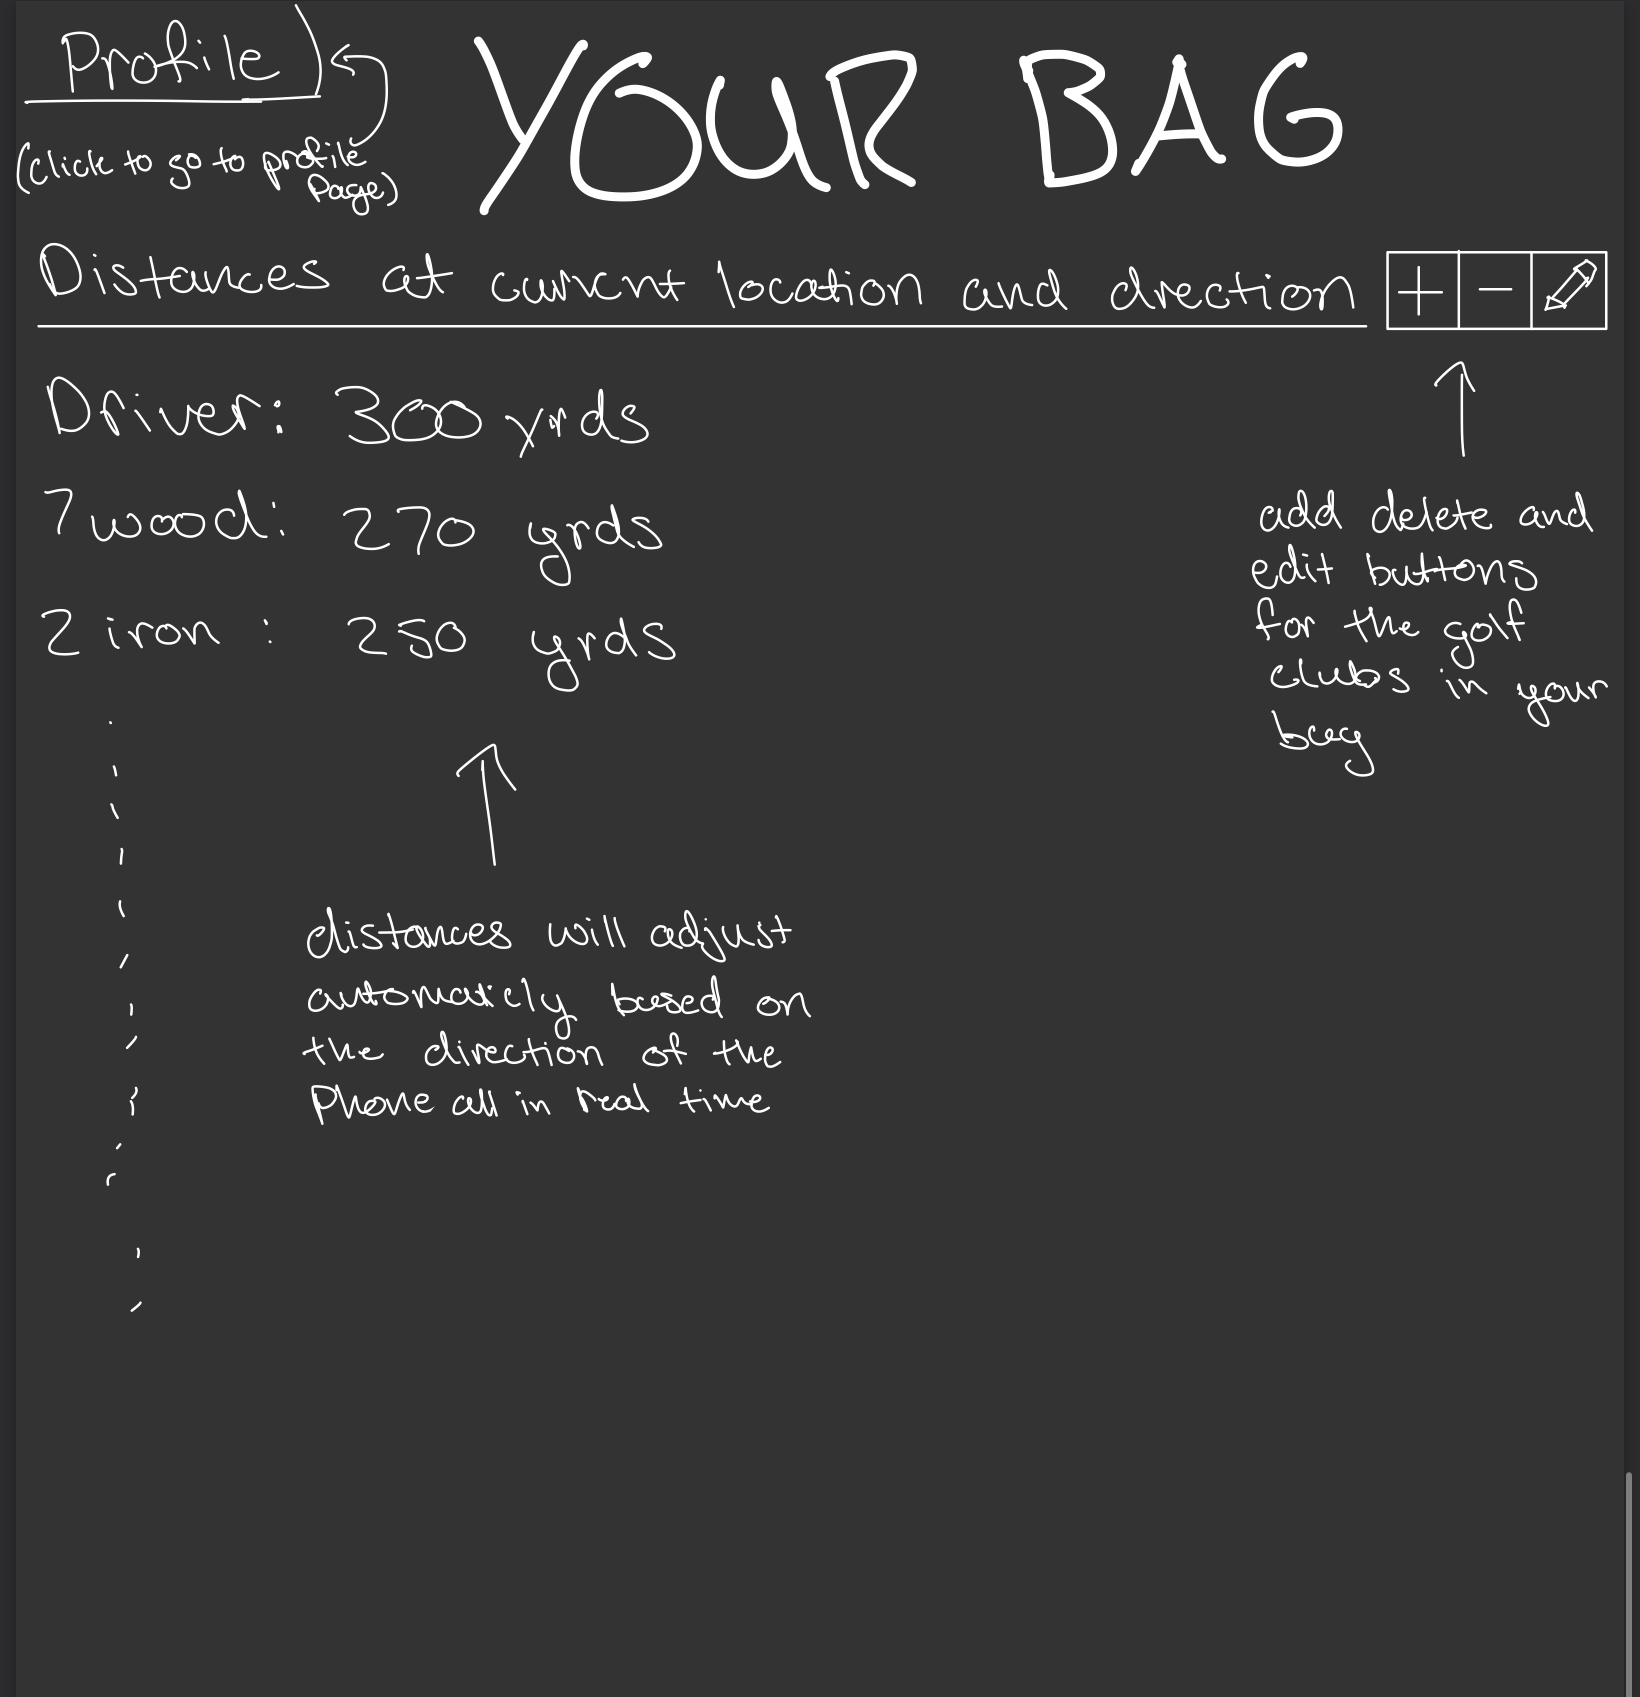 Profile
(click to go to profile
Page)
YOUR BAG
Distances at current location and direction
+ -
Driver: 300 yrds
7 wood: 270 yrds
2 iron : 250 yrds
add delete and
edit buttons
for the golf
clubs in your
bag
distances will adjust
automaticly based on
the direction of the
Phone all in real time